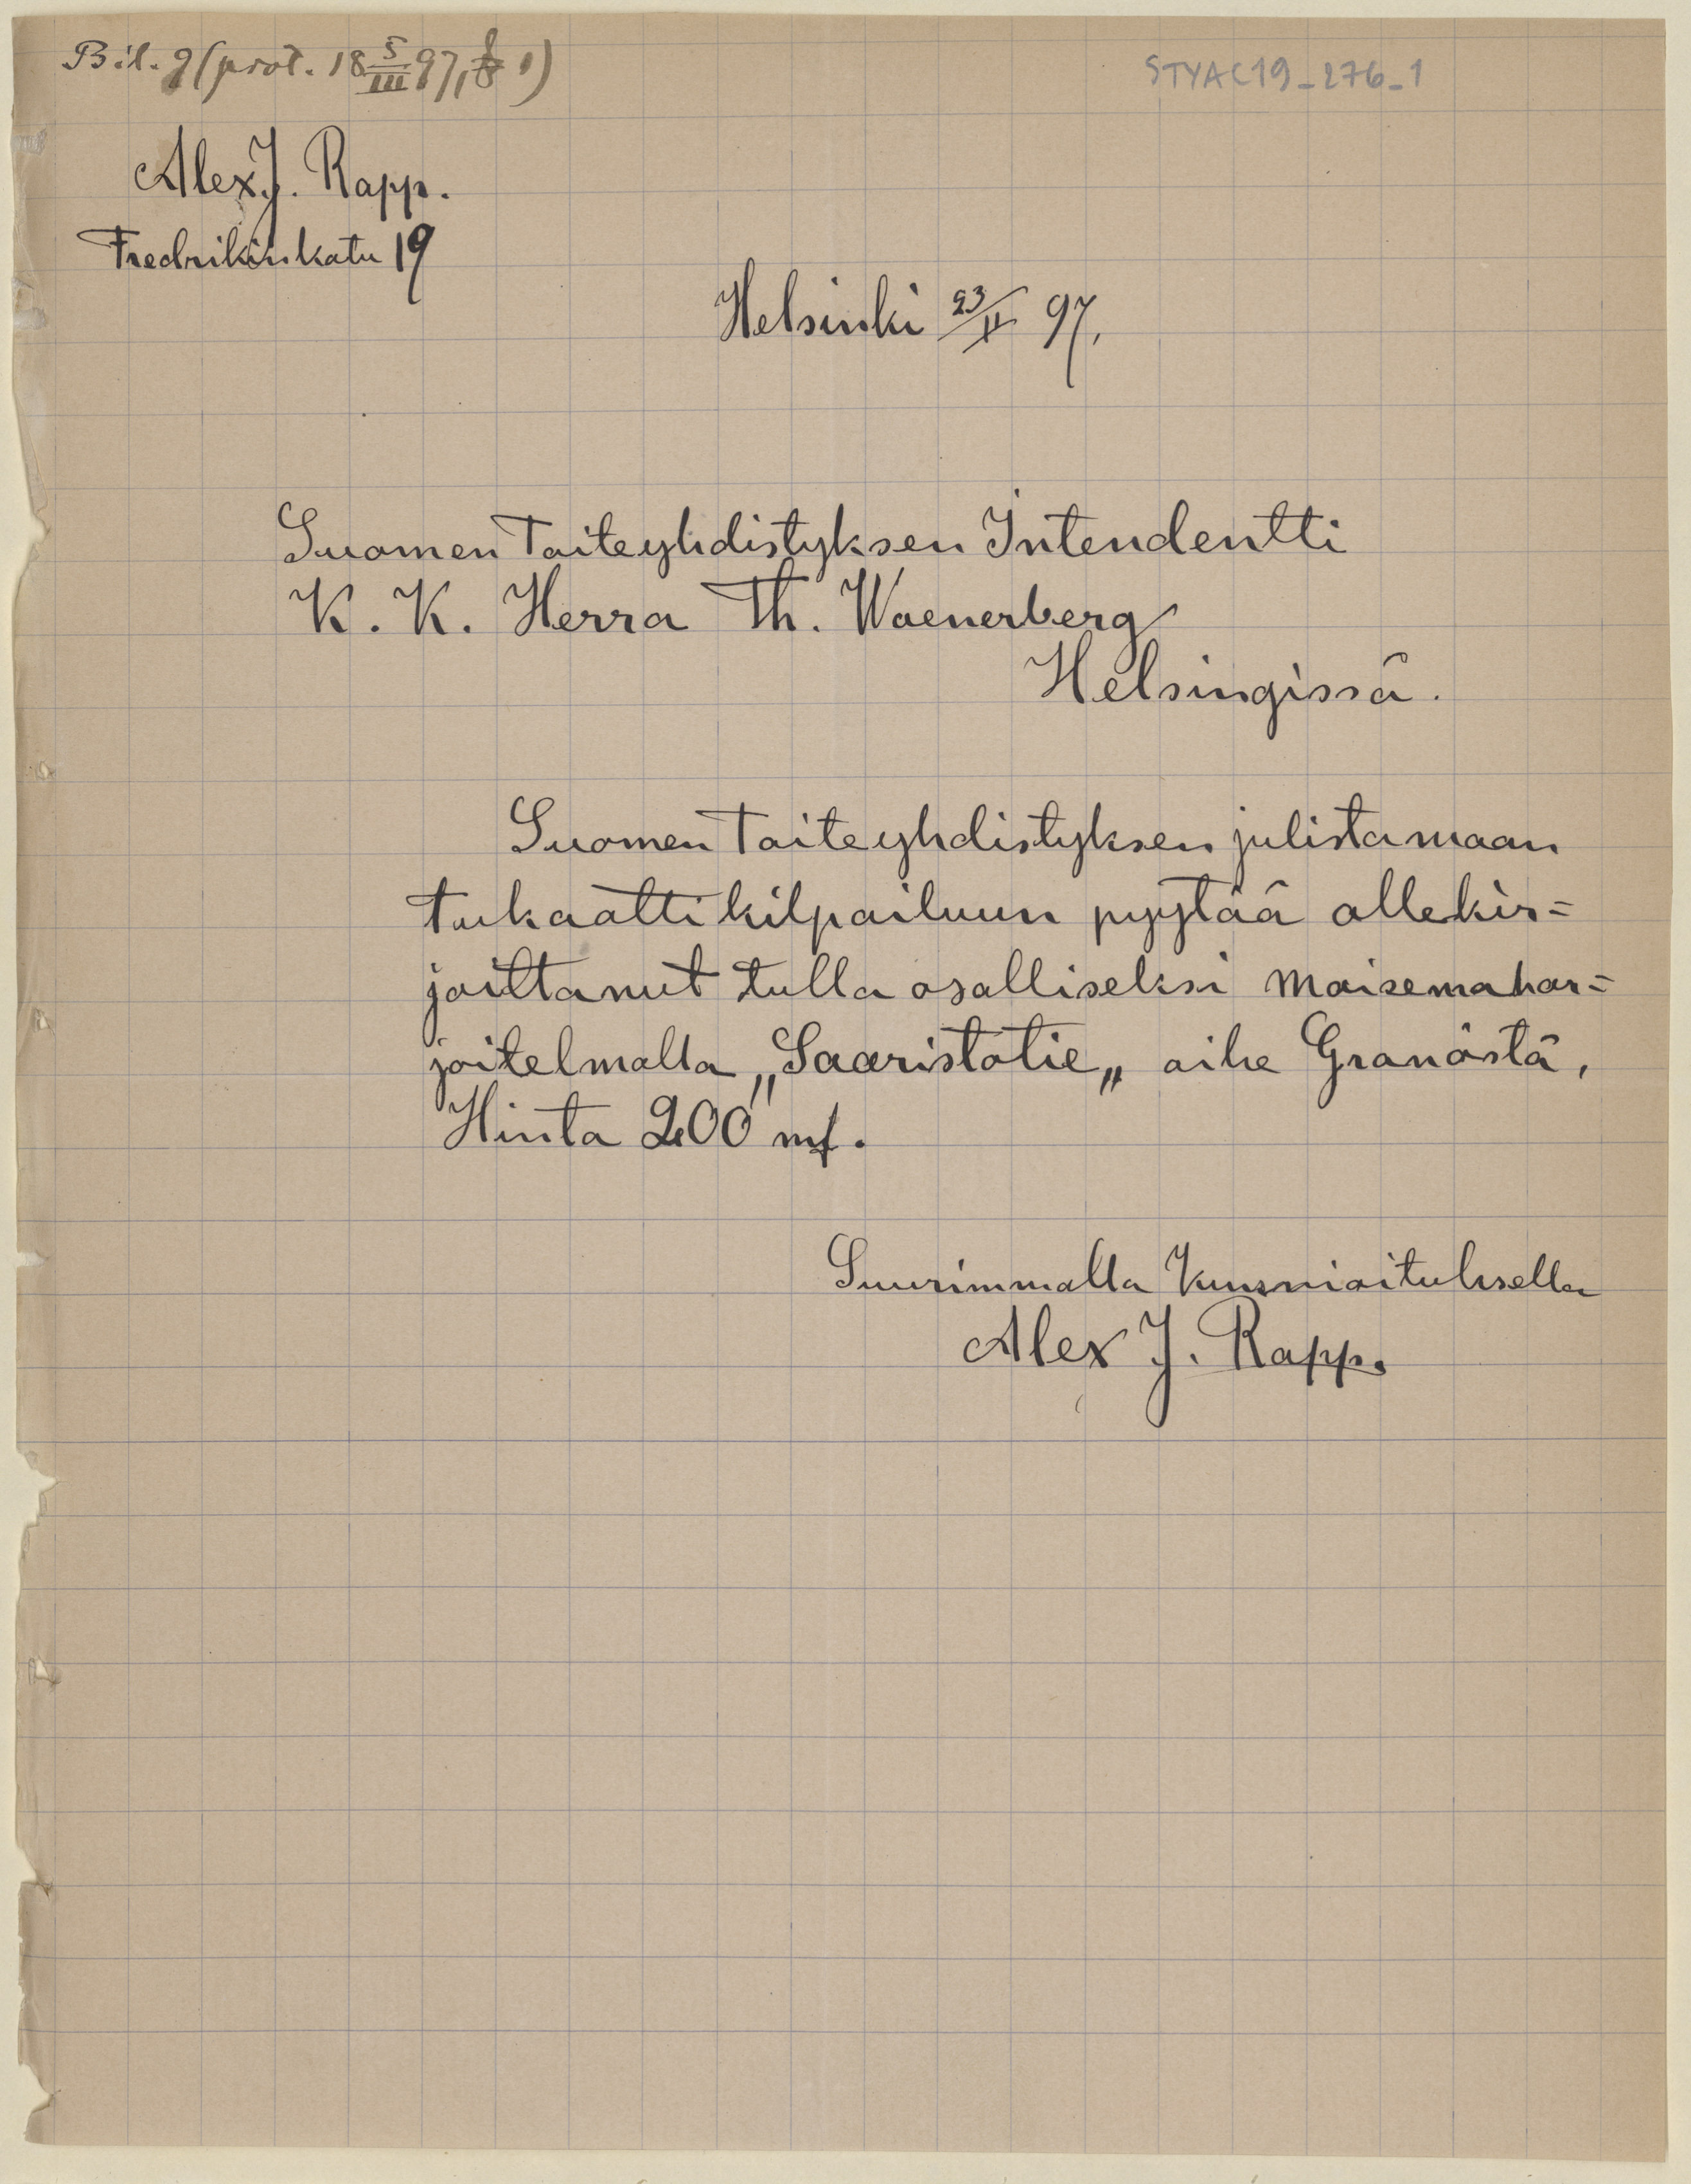 Bil. 9 (prot. 18 5/III 97, § 1)
STYAC19_276_1
Alex J. Rapp.
Fredrikinkatu 19
Helsinki 23/II 97.
Suomen Taiteyhdistyksen Intendentti
K. K. Herra Th. Waenerberg
Helsingissä.
Suomen Taiteyhdistyksen julistamaan
tukaatti kilpailuun pyytää allekir=
joittanut tulla osalliseksi maisemahar=
joitelmalla „Saaristotie„ aihe Granöstä,
Hinta 200 mf.
Suurimmalla Kunnioituksella
Alex J. Rapp.